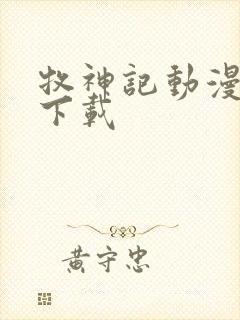 牧神記動漫
下載
黃守忠